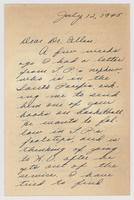 July 12, 1945
Dear Dr. Allen
A few weeks
ago I had a letter
from J.P.'s nephew
who is in the
South Pacific ask-
ing me to send
him one of your
books on basketball
He wants to fol-
low in J.P.'s
footsteps and is
thinking of going
to K.U. after he
gets out of the
service. I have
tried to find